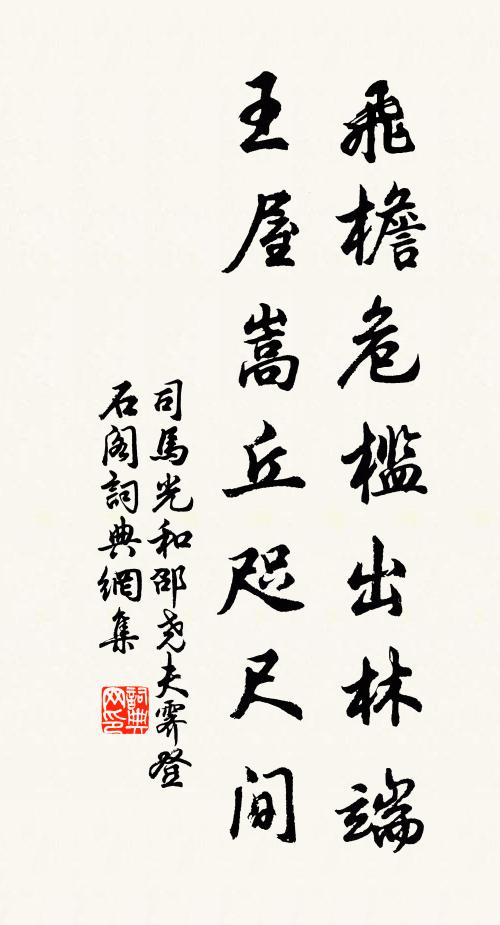 飛檐危檻出林端
王屋嵩丘咫尺间
司馬光和邵尧夫霽登
石阁詞典網集
詞典网印